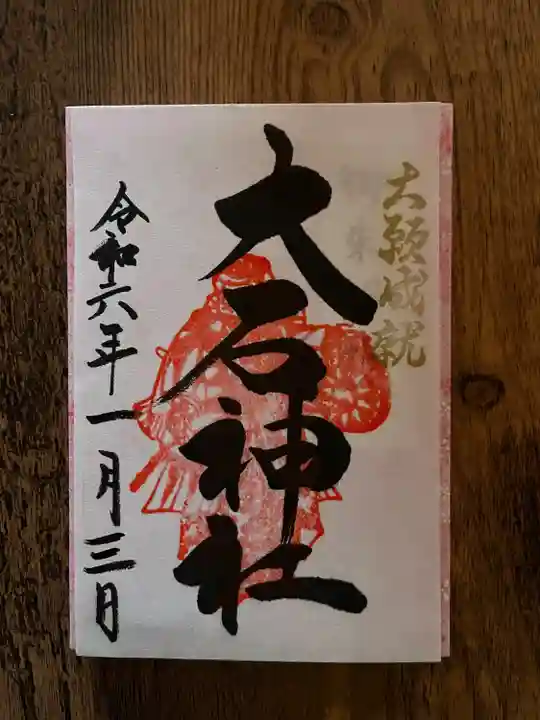 大願成就
大石神社
令和六年一月三日